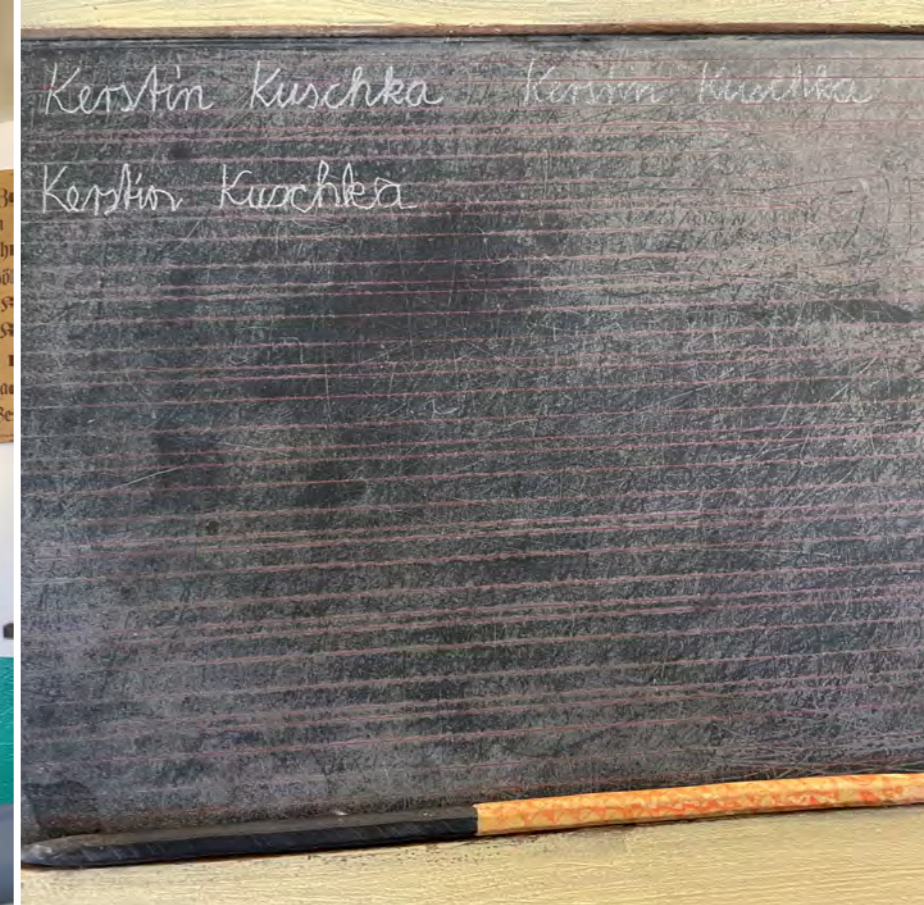 Kerstin Kuschka Kerstin Kuschka
Kerstin Kuschka